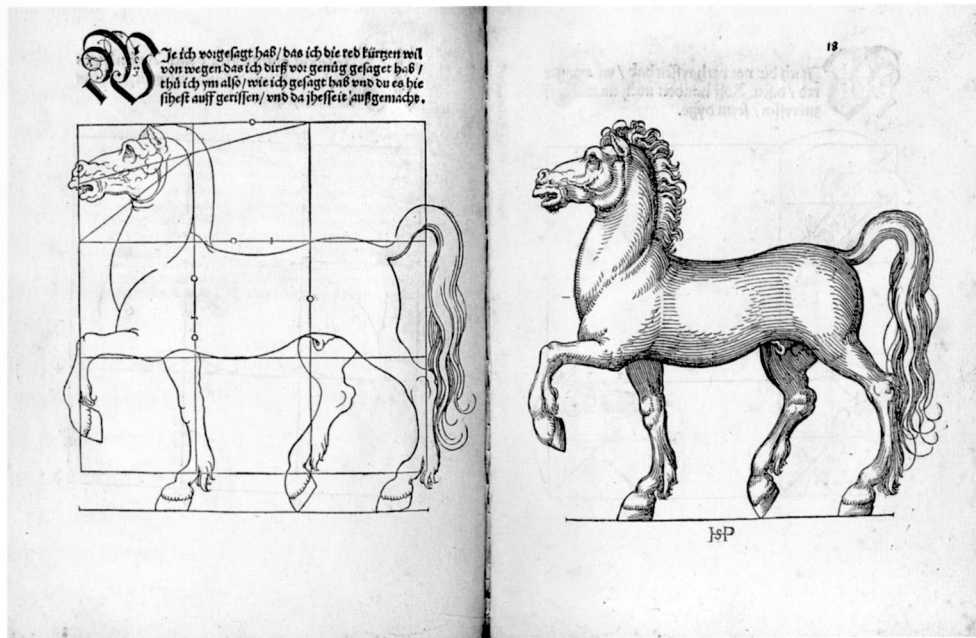 Wie ich vorgesagt hab / das ich die red kürtzen wil
von wegen das ich dirß vor genůg gesaget hab /
thů ich ym also / wie ich gesagt hab vnd du es hie
sihest auff gerissen / vnd da jhesseit außgemacht.
18
HSP